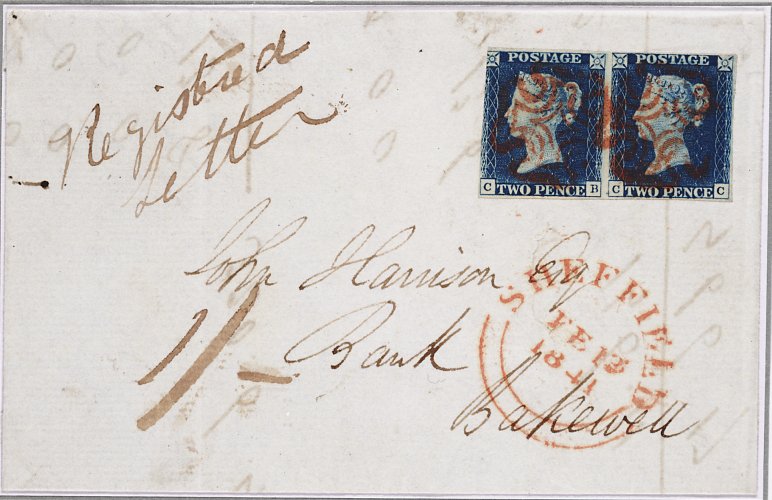 Registred
Letter
POSTAGE
TWO PENCE
C B
POSTAGE
TWO PENCE
C C
John Harrison Esq
1/-
Bank
Bakewell
SHEFFIELD
FE 13
1841